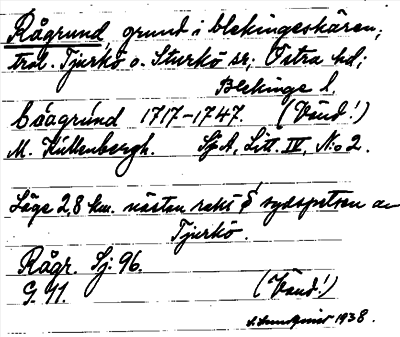 Rågrund, grund i blekingeskären;
trol. Tjurkö o. Sturkö sr; Östra hd;
Blekinge l.
Råagrund 1717-1747. (Vänd!)
M. Kullenbergh. SjA, Litt. IV, No 2.
Läge 2,8 km. nästan rakt S sydspetsen av
Tjurkö.
Rågr. Sj. 96.
G. 41. (Vänd!)
1938.